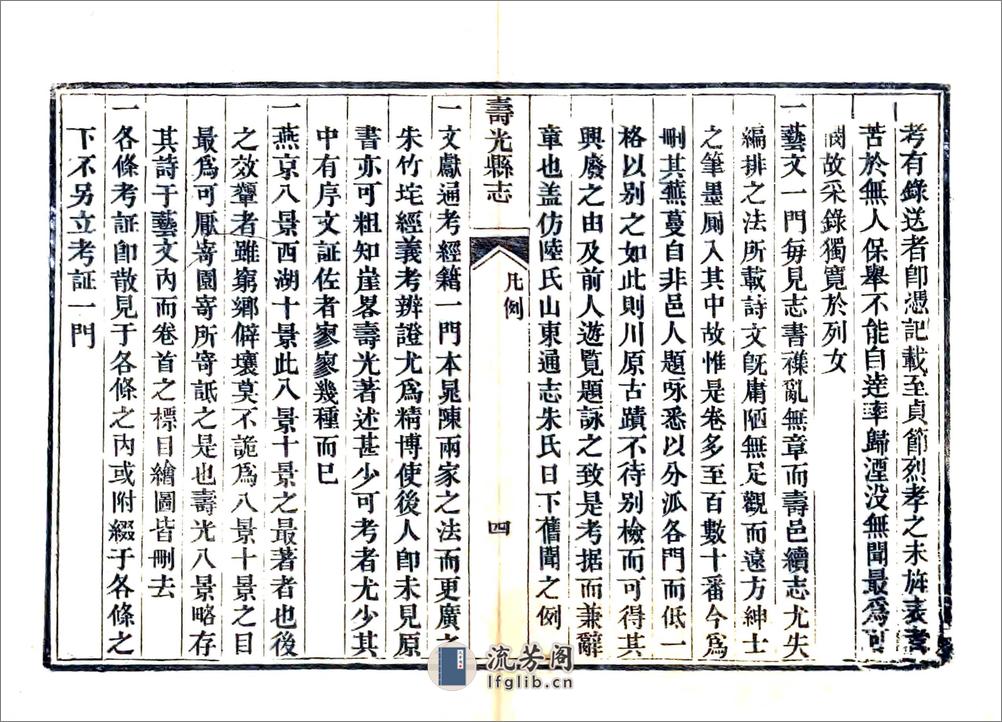 考有錄送者卽憑記載至貞節烈孝之未旌表者
苦於無人保舉不能自達率歸湮没無聞最爲可
閔故采錄獨寛於列女
一藝文一門毎見志書襍亂無章而壽邑續志尤失
編排之法所載詩文旣庸陋無足觀而遠方紳士
之筆墨厠入其中故惟是卷多至百數十番今爲
刪其蕪蔓自非邑人題咏悉以分泒各門而低一
格以别之如此則川原古蹟不待别檢而可得其
興廢之由及前人遊覧題詠之致是考据而兼辭
章也盖仿陸氏山東通志朱氏日下舊聞之例
壽光縣志
凡例
四
一文獻通考經籍一門本晁陳兩家之法而更廣之
朱竹垞經義考辨證尤爲精博使後人卽未見原
書亦可粗知崖畧壽光著述甚少可考者尤少其
中有序文証佐者寥寥幾種而已
一燕京八景西湖十景此八景十景之最著者也後
之效顰者雖窮鄉僻壤莫不詭爲八景十景之目
最爲可厭寄園寄所寄詆之是也壽光八景略存
其詩于藝文内而卷首之標目繪圖皆刪去
一各條考証卽散見于各條之内或附綴于各條之
下不另立考証一門
流芳阁
lfglib.cn